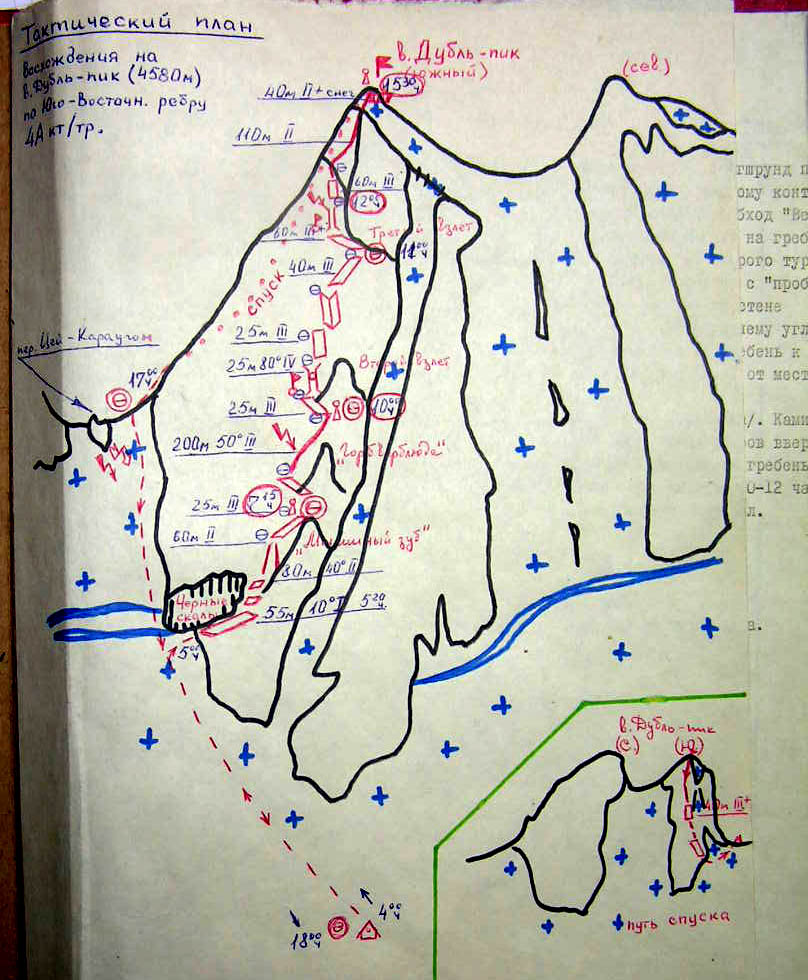 Тактический план
восхождения на
в. Дубль-пик (4580м)
по Юго-Восточн. ребру
4А кт/тр.
в. Дубль-пик
(южный)
(сев.)
15³⁰ч
40м II+ снег
110м II
60м III
12⁰⁰ч
60м III+
Третий взлет
11⁰⁰ч
40м III
спуск
25м III
пер. Цей-Караугом
17⁰⁰ч
25м 80° IV
Второй взлет
25м III
10⁰⁰ч
200м 50° III
"Горб верблюда"
25м III
7¹⁵ч
60м II
"Мышиный зуб"
80м 40° II
Черные
скалы
55м 10° I 5²⁰ч.
5⁰⁰ч
4⁰⁰ч
18⁰⁰ч
в. Дубль-пик
(С.) (Ю.)
40м III+
путь спуска
тшрунд п
ому конт
бход "Ве
на греб
рого тур
с "проб
стене
ему угл
ебень к
от мест
/. Ками
ов ввер
гребень
0-12 ча
л.
а.